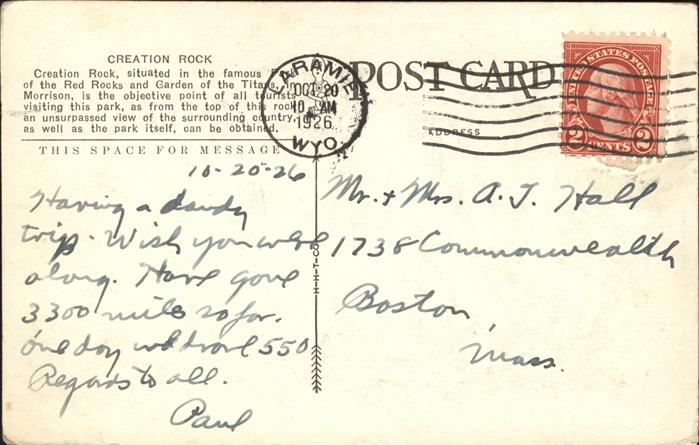 CREATION ROCK
Creation Rock, situated in the famous
of the Red Rocks and Garden of the Titans, in
Morrison, is the objective point of all tourists
visiting this park, as from the top of this rock
an unsurpassed view of the surrounding country,
as well as the park itself, can be obtained.
THIS SPACE FOR MESSAGE
POST CARD
ADDRESS
LARAMIE
OCT 20
10 AM
1926
WYO.
UNITED STATES POSTAGE
2 CENTS 2
H-H-T-CO
10-20-26
Having a dandy
trip. Wish you were
along. Have gone
3300 miles so far.
One day we drove 550
Regards to all.
Paul
Mr. + Mrs. A. J. Hall
1738 Commonwealth
Boston
Mass.